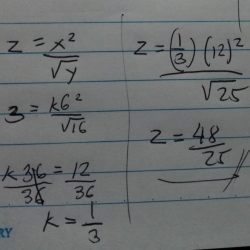 z = x²/√y
3 = k6²/√16
k36/36 = 12/36
k = 1/3
z = (1/3)(12)²/√25
z = 48/25
RY